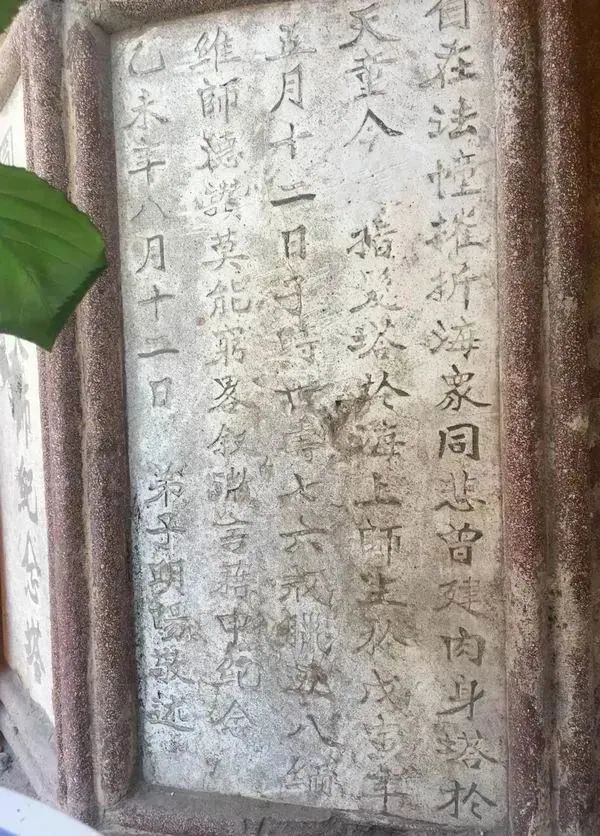 自在法幢摧折海衆同悲曾建肉身塔於
天童今髮塔於海上師生於戊寅年
五月十二日子時世壽七六戒臘五八緬
維師德讚莫能窮畧叙言藉申紀念
乙未年八月十二日 弟子明暘敬述
師紀念塔